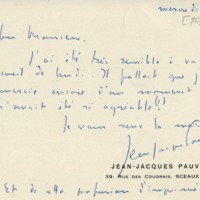 mercredi
[19
Monsieur,
J'ai été très sensible à
de lundi. Il fallait que j
encore d'un moment
m'avait été si agréable (1)
Je vous serre la
JEAN-JACQUES PAUV
38, RUE DES COUDRAIS, SCEAUX
Et de cette profusion d'imprimé